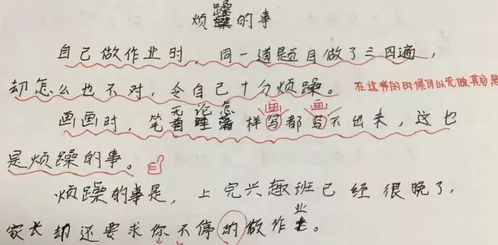 烦躁的事
自己做作业时，同一道题目做了三四遍，
却怎么也不对，令自己十分烦躁。在这样的时候可以先做其
画画时，笔无论怎样画都画不出来，这也
是烦躁的事。
烦躁的事是，上完兴趣班已经很晚了，
家长却还要求你不停的做作业。